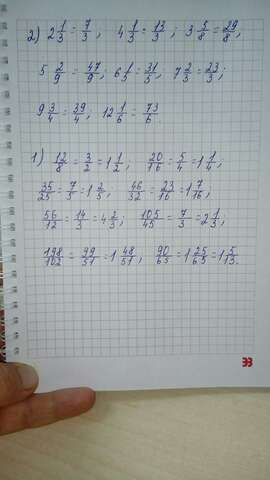 2) 2 1/3 = 7/3, 4 1/3 = 13/3; 3 5/8 = 29/8,
5 2/9 = 47/9; 6 1/5 = 31/5; 7 2/3 = 23/3;
9 3/4 = 39/4, 12 1/6 = 73/6
1) 12/8 = 3/2 = 1 1/2, 20/16 = 5/4 = 1 1/4,
35/25 = 7/5 = 1 2/5; 46/32 = 23/16 = 1 7/16;
56/12 = 14/3 = 4 2/3; 105/45 = 7/3 = 2 1/3;
198/102 = 99/51 = 1 48/51, 90/65 = 1 25/65 = 1 5/13.
33